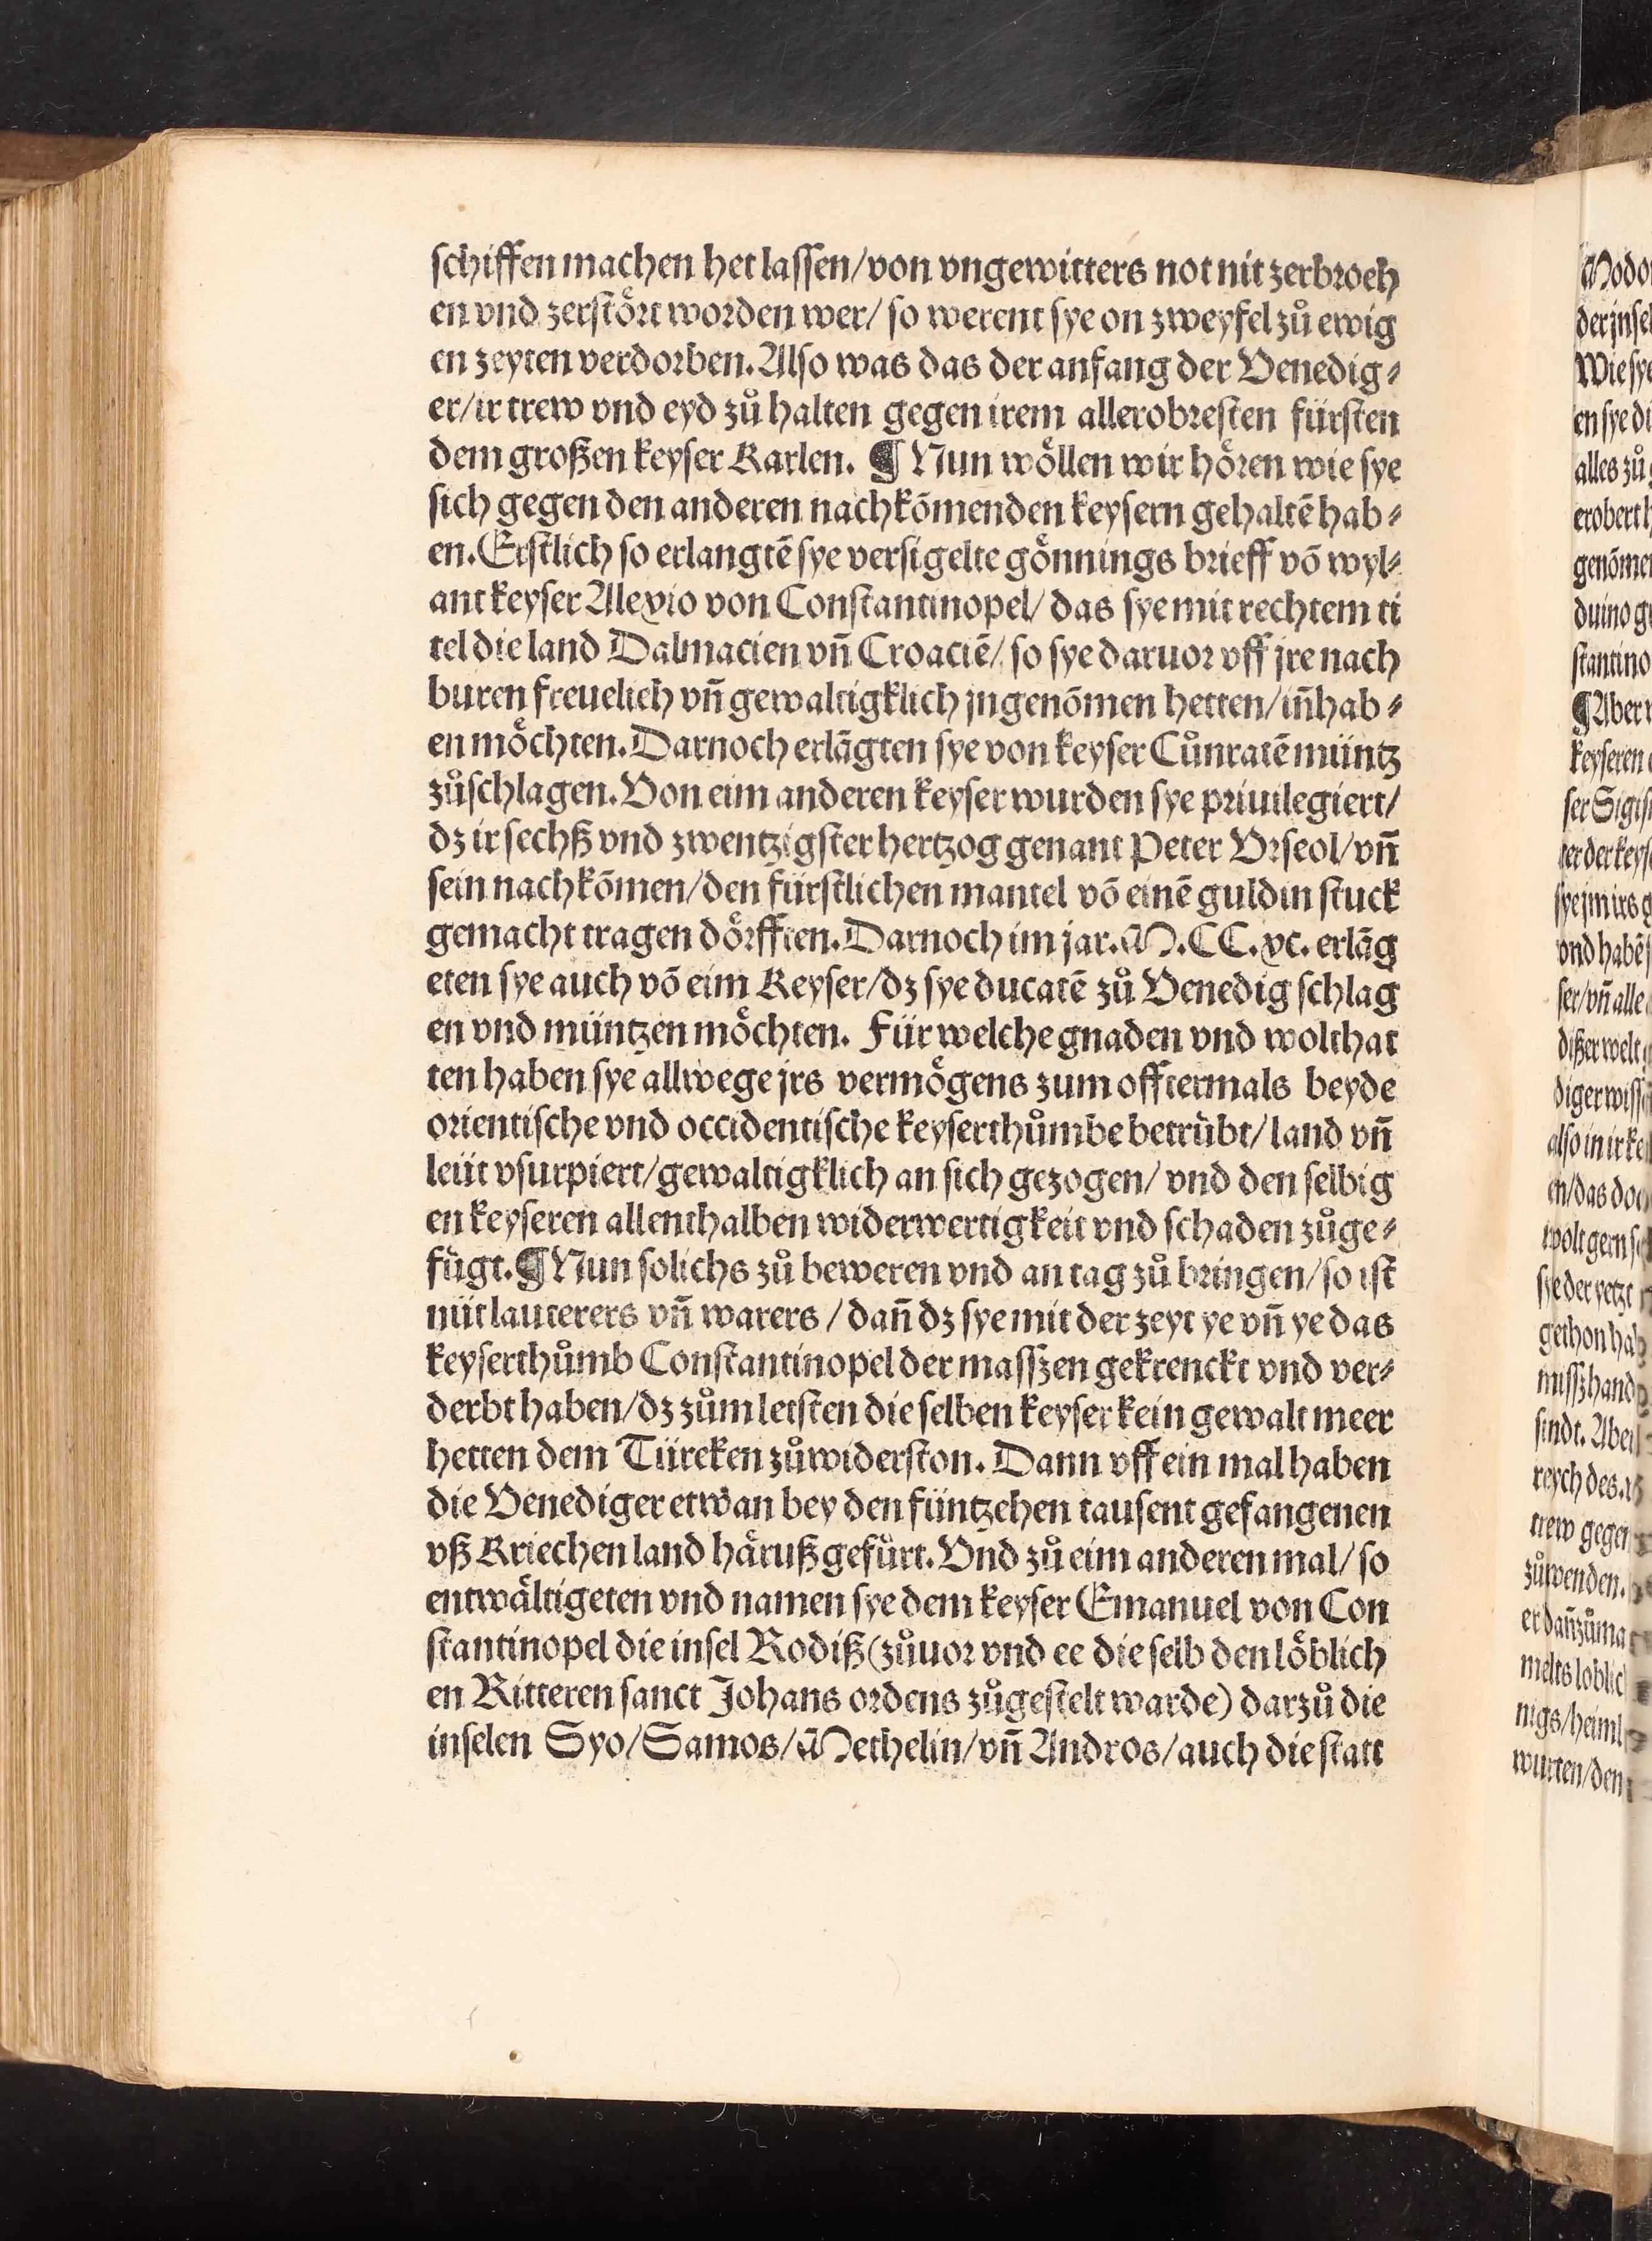 schiffen machen het lassen/von vngewitters not nit zerbroch
en vnd zerstoͤrt worden wer/ so werent sye on zweyfel zuͦ ewig
en zeyten verdorben. Also was das der anfang der Venedig⸗
er/ir trew vnd eyd zuͦ halten gegen irem allerobresten fürsten
dem großen keyser Karlen. ¶ Nun woͤllen wir hoͤren wie sye
sich gegen den anderen nachkōmenden keysern gehaltē hab⸗
en. Erstlich so erlangtē sye versigelte goͤnnings brieff vō wyl⸗
ant keyser Alexio von Constantinopel/ das sye mit rechtem ti
tel die land Dalmacien vñ Croaciē/ so sye daruor vff jre nach
buren freuelich vñ gewaltigklich jngenōmen hetten/iñhab⸗
en moͤchten. Darnoch erlāgten sye von keyser Cuͦnratē müntz
zuͦschlagen. Von eim anderen keyser wurden sye priuilegiert/
dz ir sechß vnd zwentzigster hertzog genant Peter Vrseol/vñ
sein nachkōmen/den fürstlichen mantel vō einē guldin stuck
gemacht tragen doͤrfften. Darnoch im jar. M.CC.xc. erlāg
eten sye auch vō eim Keyser/dz sye ducatē zuͦ Venedig schlag
en vnd müntzen moͤchten. Für welche gnaden vnd wolthat
ten haben sye allwege jrs vermoͤgens zum offtermals beyde
orientische vnd occidentische keyserthuͦmbe betruͤbt/land vñ
leüt vsurpiert/gewaltigklich an sich gezogen/ vnd den selbig
en keyseren allenthalben widerwertigkeit vnd schaden zuͦge⸗
fuͤgt. ¶ Nun solichs zuͦ beweren vnd an tag zuͦ bringen/so ist
nüt lauterers vñ warers / dañ dz sye mit der zeyt ye vñ ye das
keyserthuͦmb Constantinopel der masszen gekrenckt vnd ver⸗
derbt haben/dz zuͦm letsten die selben keyser kein gewalt meer
hetten dem Türcken zuͦwiderston. Dann vff ein mal haben
die Venediger etwan bey den füntzehen tausent gefangenen
vß Kriechen land haͤruß gefuͤrt. Vnd zuͦ eim anderen mal/ so
entwaͤltigeten vnd namen sye dem keyser Emanuel von Con
stantinopel die insel Rodiß (zuͦuor vnd ee die selb den loͤblich
en Ritteren sanct Johans ordens zuͦgestelt warde) darzuͦ die
inselen Syo/Samos/Methelin/vñ Andros/auch die statt